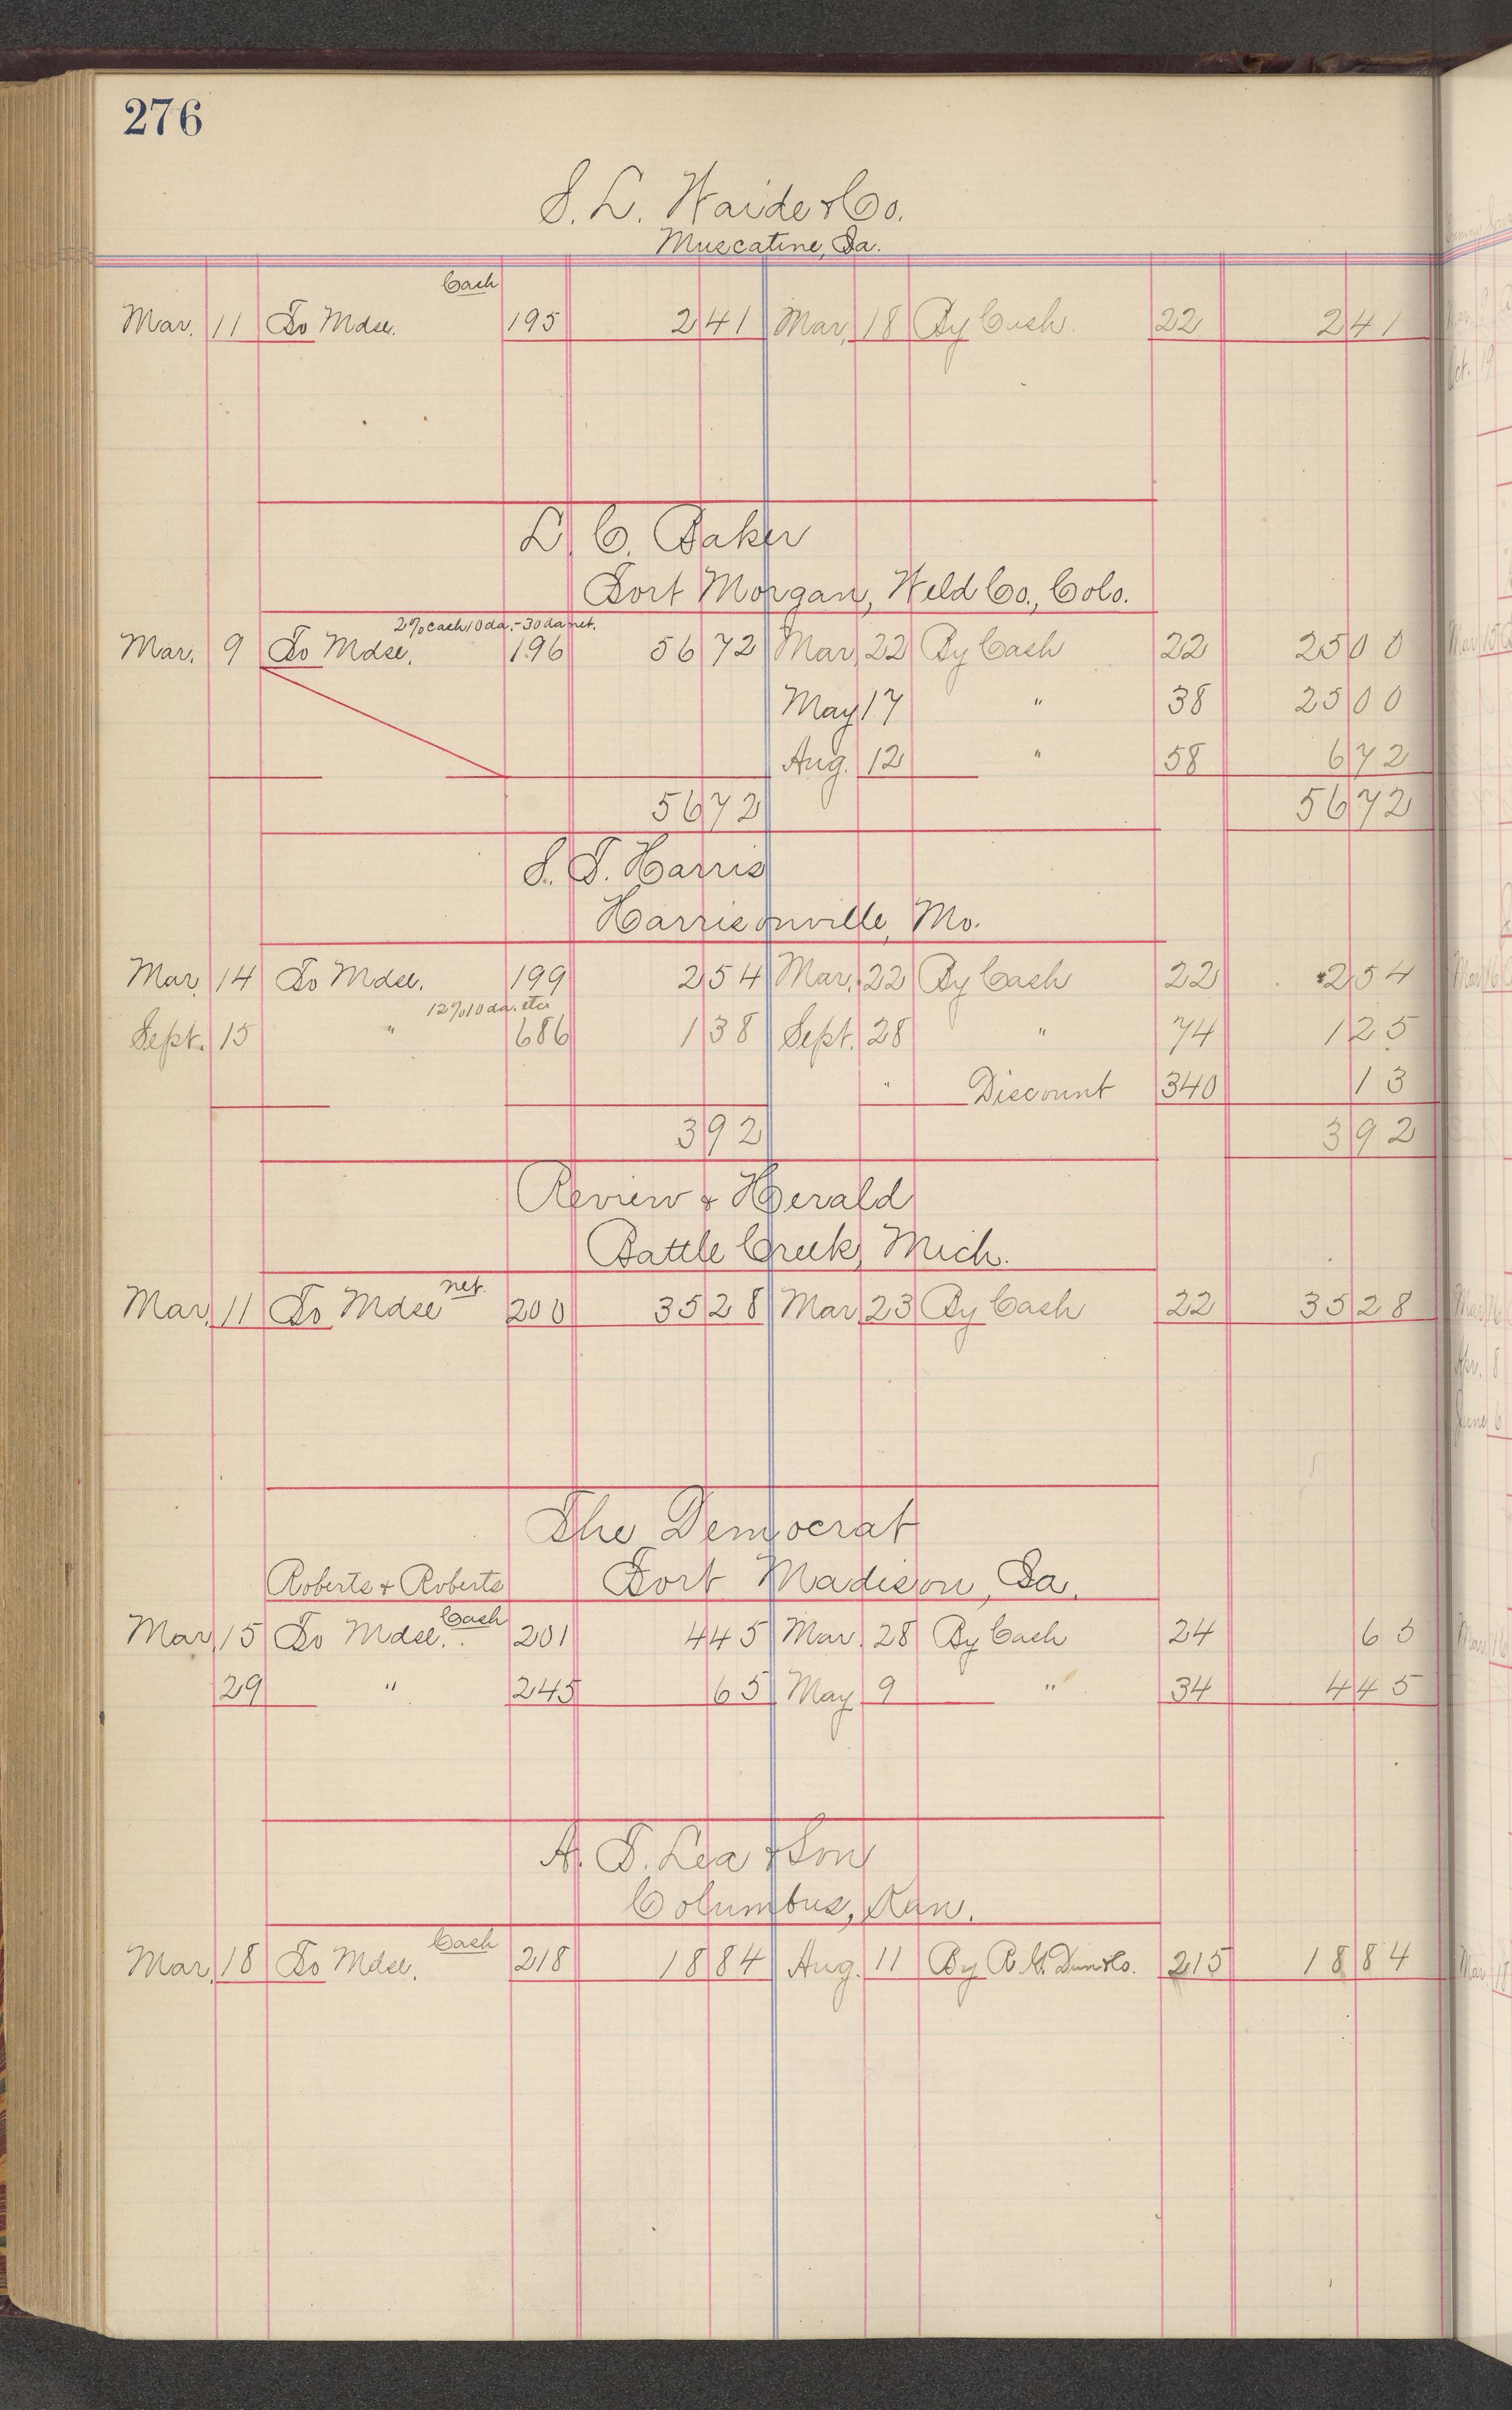 276
S. L. Waide & Co.
Muscatine, Ia.
Cash
Mar. 11 To Mdse. 195 2 41 Mar. 18 By Cash. 22 2 41
L. C. Baker
Fort Morgan, Weld Co., Colo.
2% cash 10 da. - 30 da net.
Mar. 9 To Mdse. 196 56 72 Mar. 22 By Cash 22 25 00
May 17 " 38 25 00
Aug. 12 " 58 6 72
56 72 56 72
S. T. Harris
Harrisonville, Mo.
Mar. 14 To Mdse. 199 2 54 Mar. 22 By Cash 22 2 54
12% 10 da. etc
Sept. 15 " 686 1 38 Sept. 28 " 74 1 25
" Discount 340 13
3 92 3 92
Review & Herald
Battle Creek, Mich.
Mar. 11 To Mdse net. 200 35 28 Mar. 23 By Cash 22 35 28
The Democrat
Roberts & Roberts Fort Madison, Ia.
Cash
Mar. 15 To Mdse. 201 4 45 Mar. 28 By Cash 24 65
29 " 245 65 May 9 " 34 4 45
A. T. Lea & Son
Columbus, Kan.
Cash
Mar. 18 To Mdse. 218 18 84 Aug. 11 By R. G. Dun & Co. 215 18 84